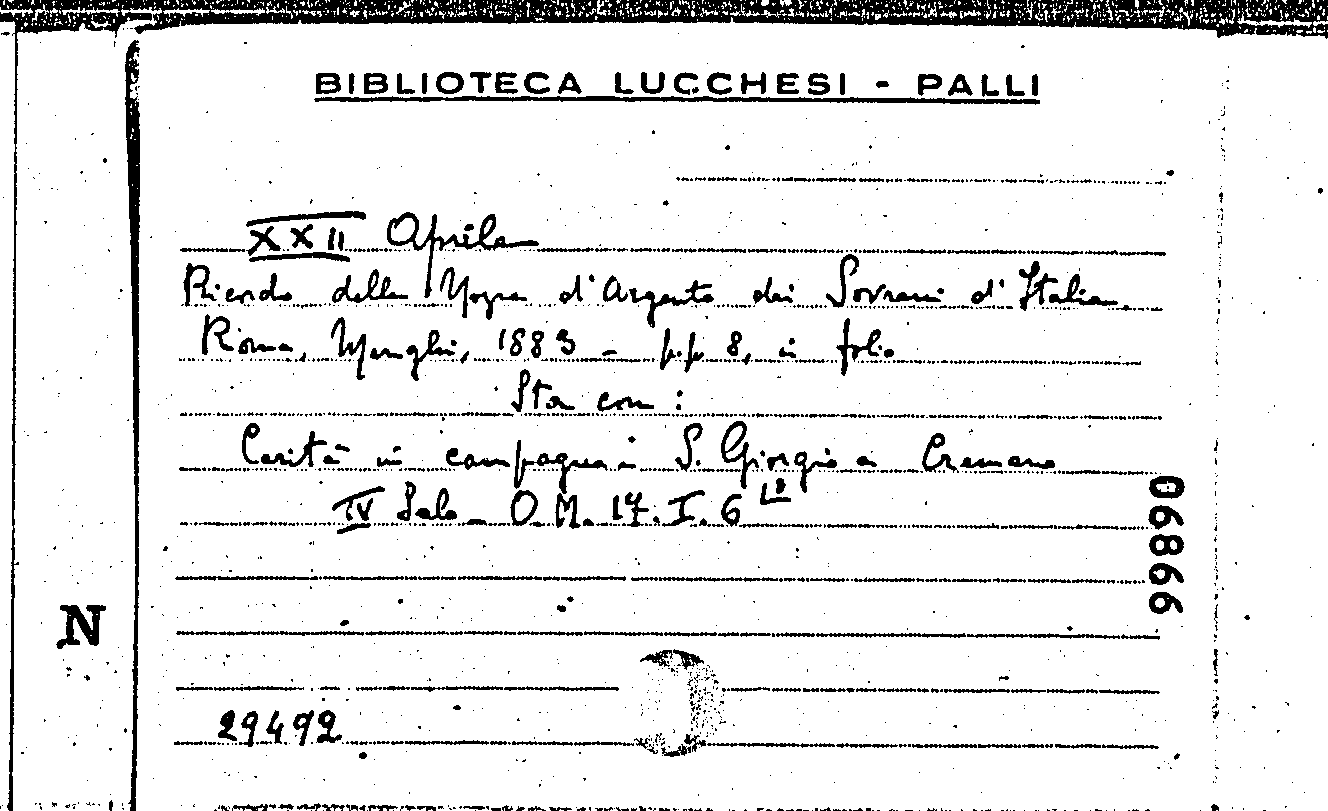 BIBLIOTECA LUCCHESI - PALLI
XXII Aprile
Ricordo delle Nozze d'Argento dei Sovrani d'Italia.
Roma, Menghi, 1883 - pp. 8, in folio
Sta con:
Carità in campagna S. Giorgio a Cremano
IV Sala - O. M. 17. I. 6
06866
N
29492